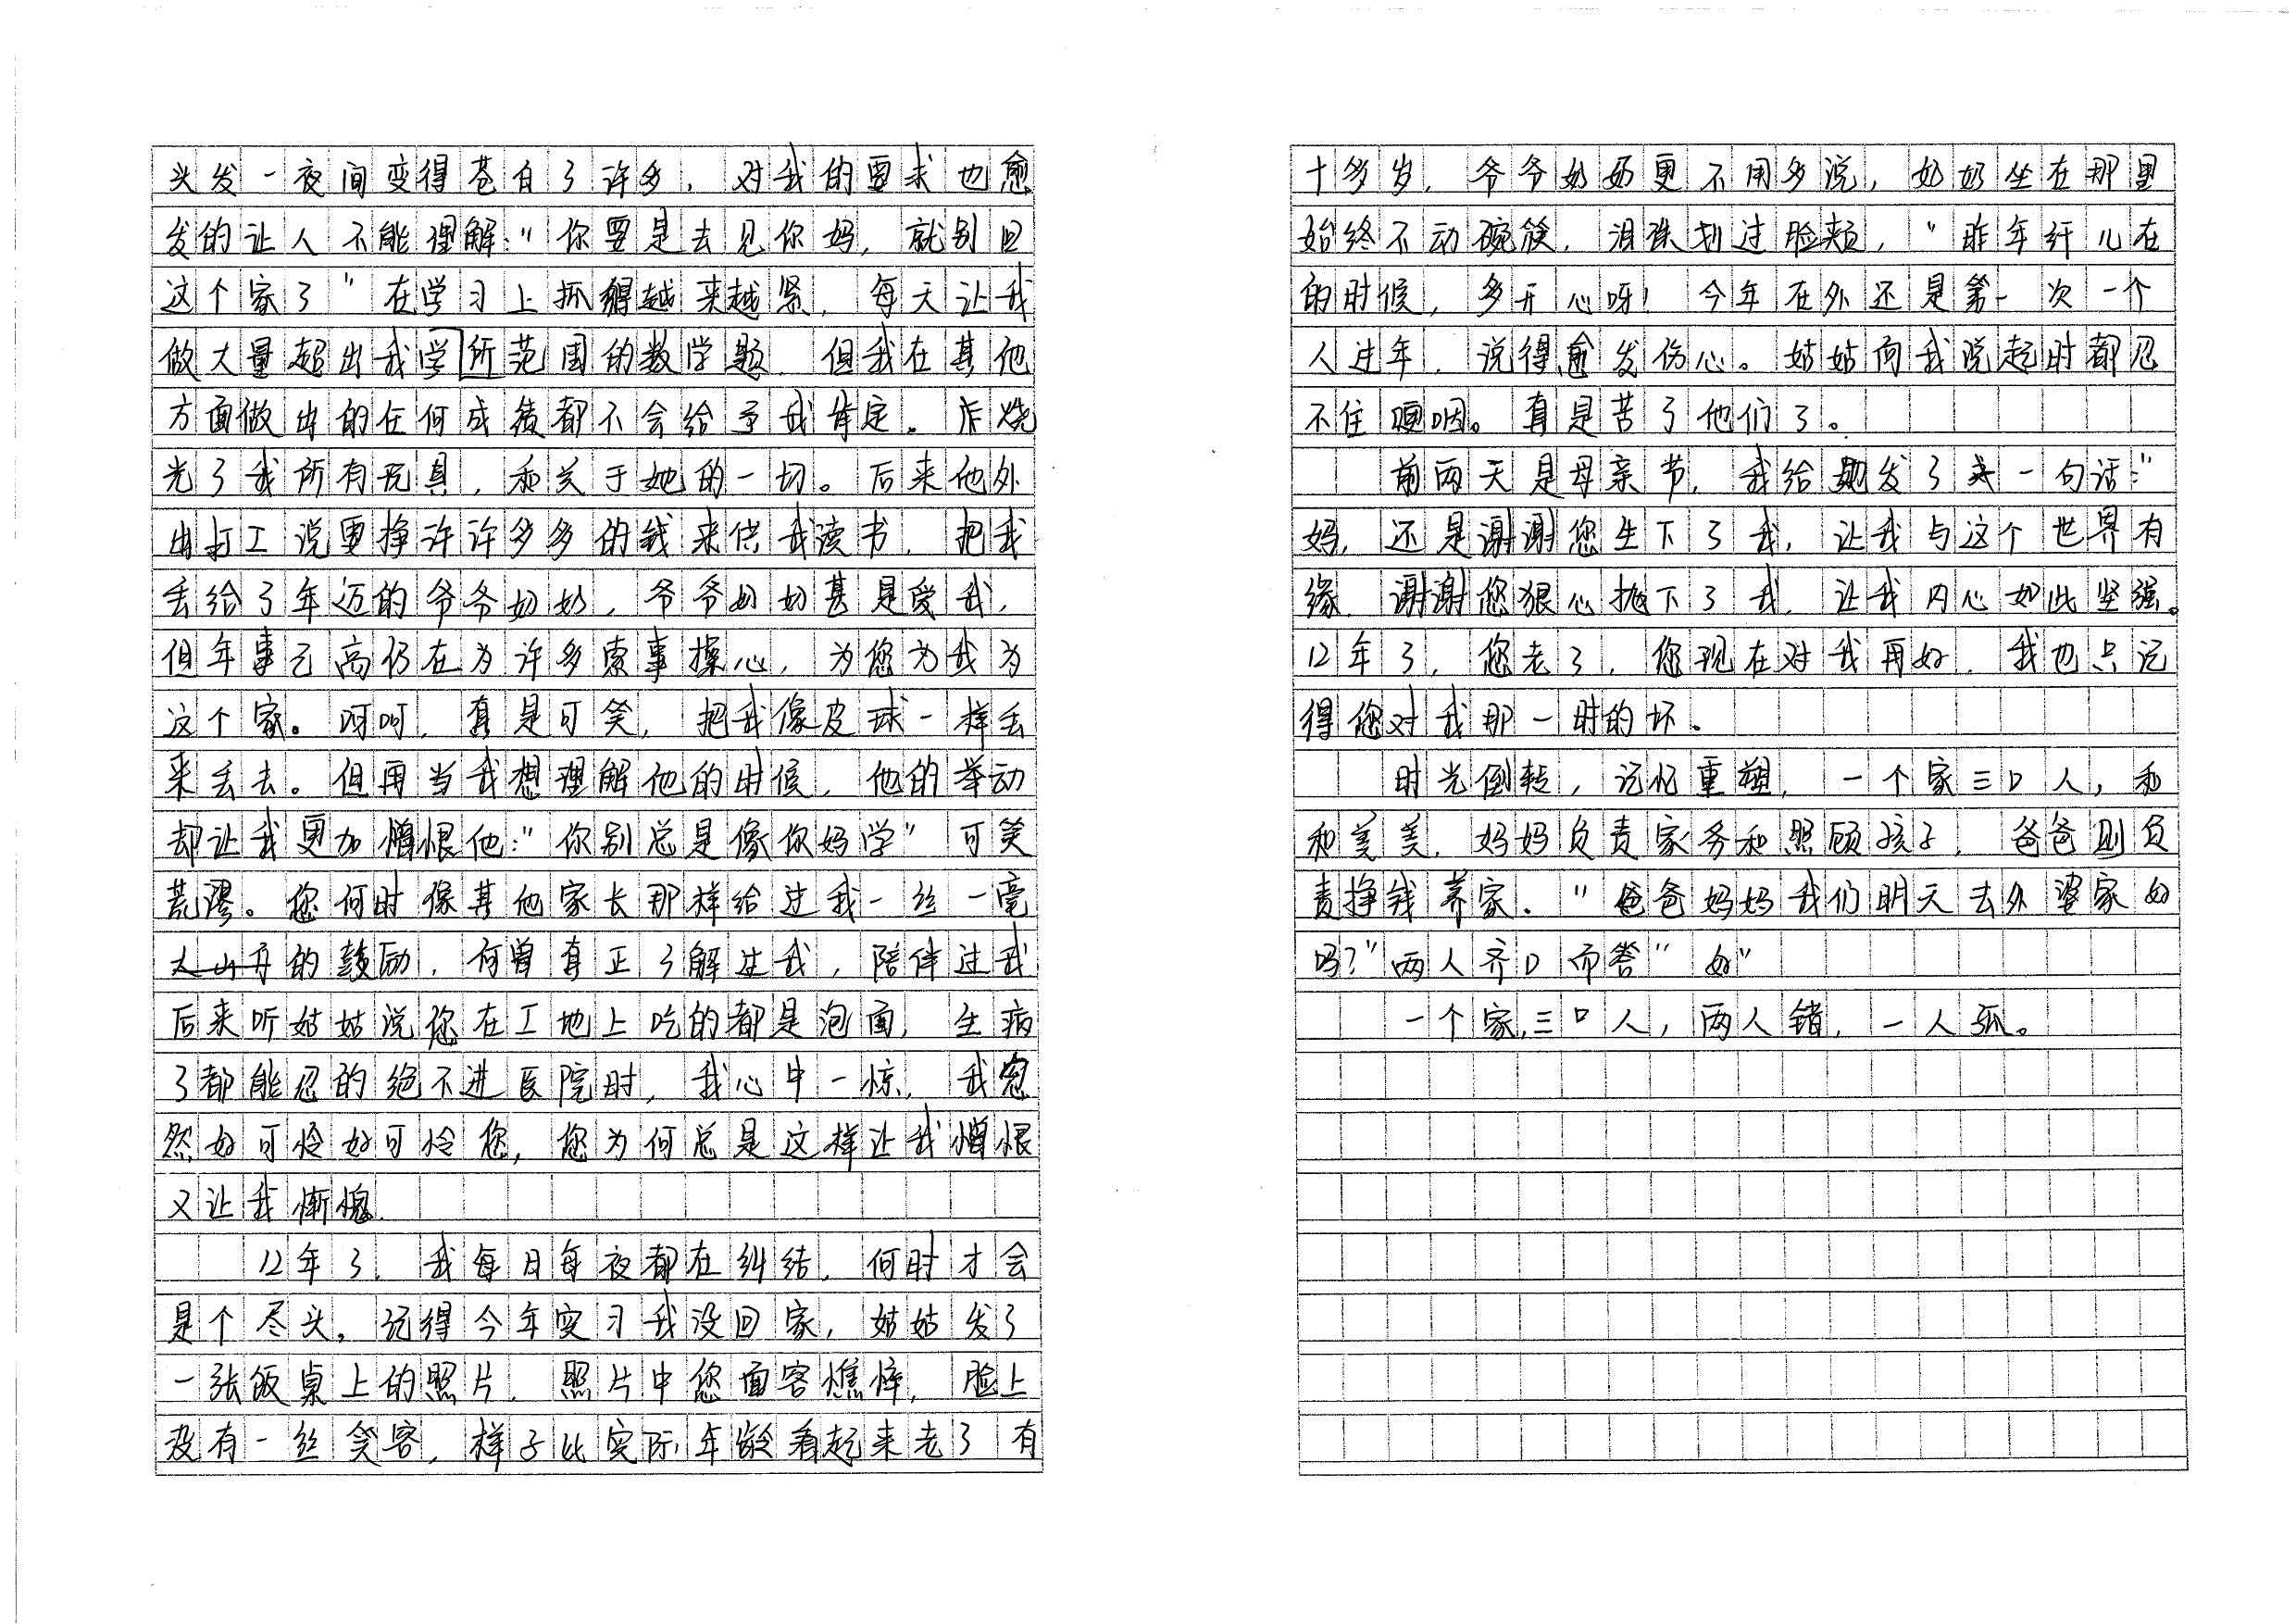 头发一夜间变得苍白了许多，对我的要求也愈
发的让人不能理解：“你要是去见你妈，就别回
这个家了”在学习上抓得越来越紧，每天让我
做大量超出我学所范围的数学题，但我在其他
方面做出的任何成绩都不会给予我肯定。还烧
光了我所有玩具，和关于她的一切。后来他外
出打工说要挣许许多多的钱来供我读书，把我
丢给了年迈的爷爷奶奶，爷爷奶奶甚是爱我，
但年事已高仍在为许多索事操心，为您为我为
这个家。呵呵，真是可笑，把我像皮球一样丢
来丢去。但再当我想理解他的时候，他的举动
却让我更加憎恨他：“你别总是像你妈学”可笑
荒谬。您何时像其他家长那样给过我一丝一毫
的鼓励，何曾真正了解过我，陪伴过我
后来听姑姑说您在工地上吃的都是泡面，生病
了都能忍的绝不进医院时，我心中一惊，我忽
然好可怜好可怜您，您为何总是这样让我憎恨
又让我惭愧.
12年了，我每日每夜都在纠结，何时才会
是个尽头。记得今年实习我没回家，姑姑发了
一张饭桌上的照片，照片中您面容憔悴，脸上
没有一丝笑容，样子比实际年龄看起来老了有
十多岁，爷爷奶奶更不用多说，奶奶坐在那里
始终不动碗筷，泪珠划过脸颊，“昨年纤儿在
的时候，多开心呀！今年在外还是第一次一个
人过年，说得愈发伤心。姑姑向我说起时都忍
不住哽咽。真是苦了他们了。
前两天是母亲节，我给她发了一句话：“
妈，还是谢谢您生下了我，让我与这个世界有
缘，谢谢您狠心抛下了我，让我内心如此坚强。
12年了，您老了，您现在对我再好，我也只记
得您对我那一时的坏。
时光倒转，记忆重塑，一个家三口人，和
和美美，妈妈负责家务和照顾孩子，爸爸则负
责挣钱养家．“爸爸妈妈我们明天去外婆家好
吗？”两人齐口而答“好”
一个家，三口人，两人错，一人孤。